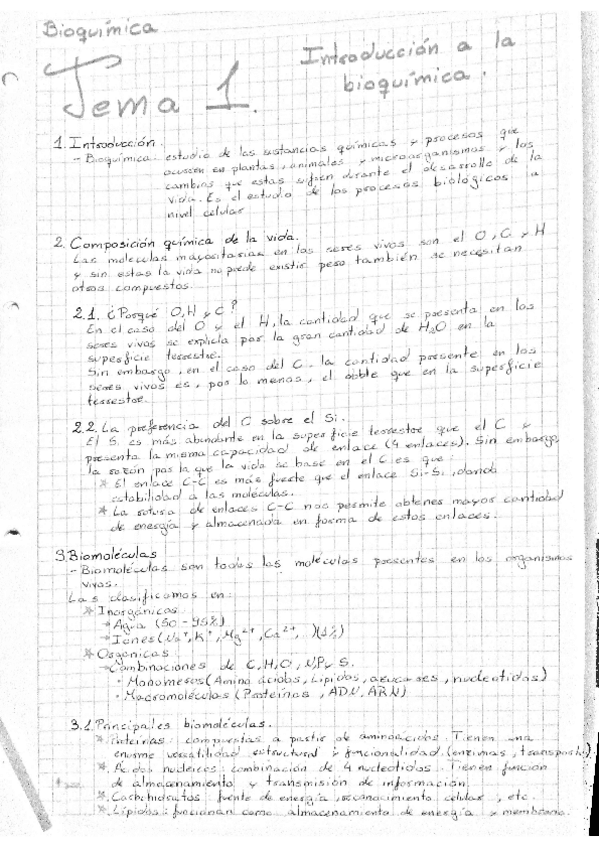 Bioquímica
Tema 1.
Introducción a la
bioquímica.
1. Introducción.
- Bioquímica: estudio de las sustancias químicas y procesos que
ocurren en plantas, animales y microorganismos y los
cambios que estas sufren durante el desarrollo de la
vida. Es el estudio de los procesos biológicos a
nivel celular
2. Composición química de la vida.
Las moleculas mayoritarias en los seres vivos son el O, C y H
y sin estas la vida no puede existir pero también se necesitan
otros compuestos.
2.1. ¿Porqué O, H y C?
En el caso del O y el H, la cantidad que se presenta en los
seres vivos se explica por la gran cantidad de H2O en la
superficie terrestre.
Sin embargo, en el caso del C, la cantidad presente en los
seres vivos es, por lo menos, el doble que en la superficie
terrestre.
2.2. La preferencia del C sobre el Si.
El Si es más abundante en la superficie terrestre que el C y
presenta la misma capacidad de enlace (4 enlaces). Sin embargo,
la razón por la que la vida se base en el C es que:
* El enlace C-C es más fuerte que el enlace Si-Si, dando
estabilidad a las moléculas.
* La rotura de enlaces C-C nos permite obtener mayor cantidad
de energía y almacenada en forma de estos enlaces.
3. Biomoléculas
- Biomoléculas son todas las moléculas presentes en los organismos
vivos.
Las clasificamos en:
* Inorgánicas
→ Agua (50-95%)
→ Iones (Na+, K+, Mg2+, Ca2+, )(1%)
* Orgánicas
→ Combinaciones de C, H, O, N, P y S.
· Monomeros (Amino ácidos, Lípidos, azucares, nucleotidos)
· Macromoléculas (Proteínas, ADN, ARN)
3.1 Principales biomoléculas.
* Proteínas: compuestas a partir de aminoácidos. Tienen una
enorme versatilidad estructural y funcionalidad (enzimas, transporte)
* Ácidos nucleicos: combinación de 4 nucleotidos. Tienen función
de almacenamiento y transmisión de información.
* Carbohidratos: fuente de energía, reconocimiento celular, etc.
* Lípidos: funcionan como almacenamiento de energía y membrana.